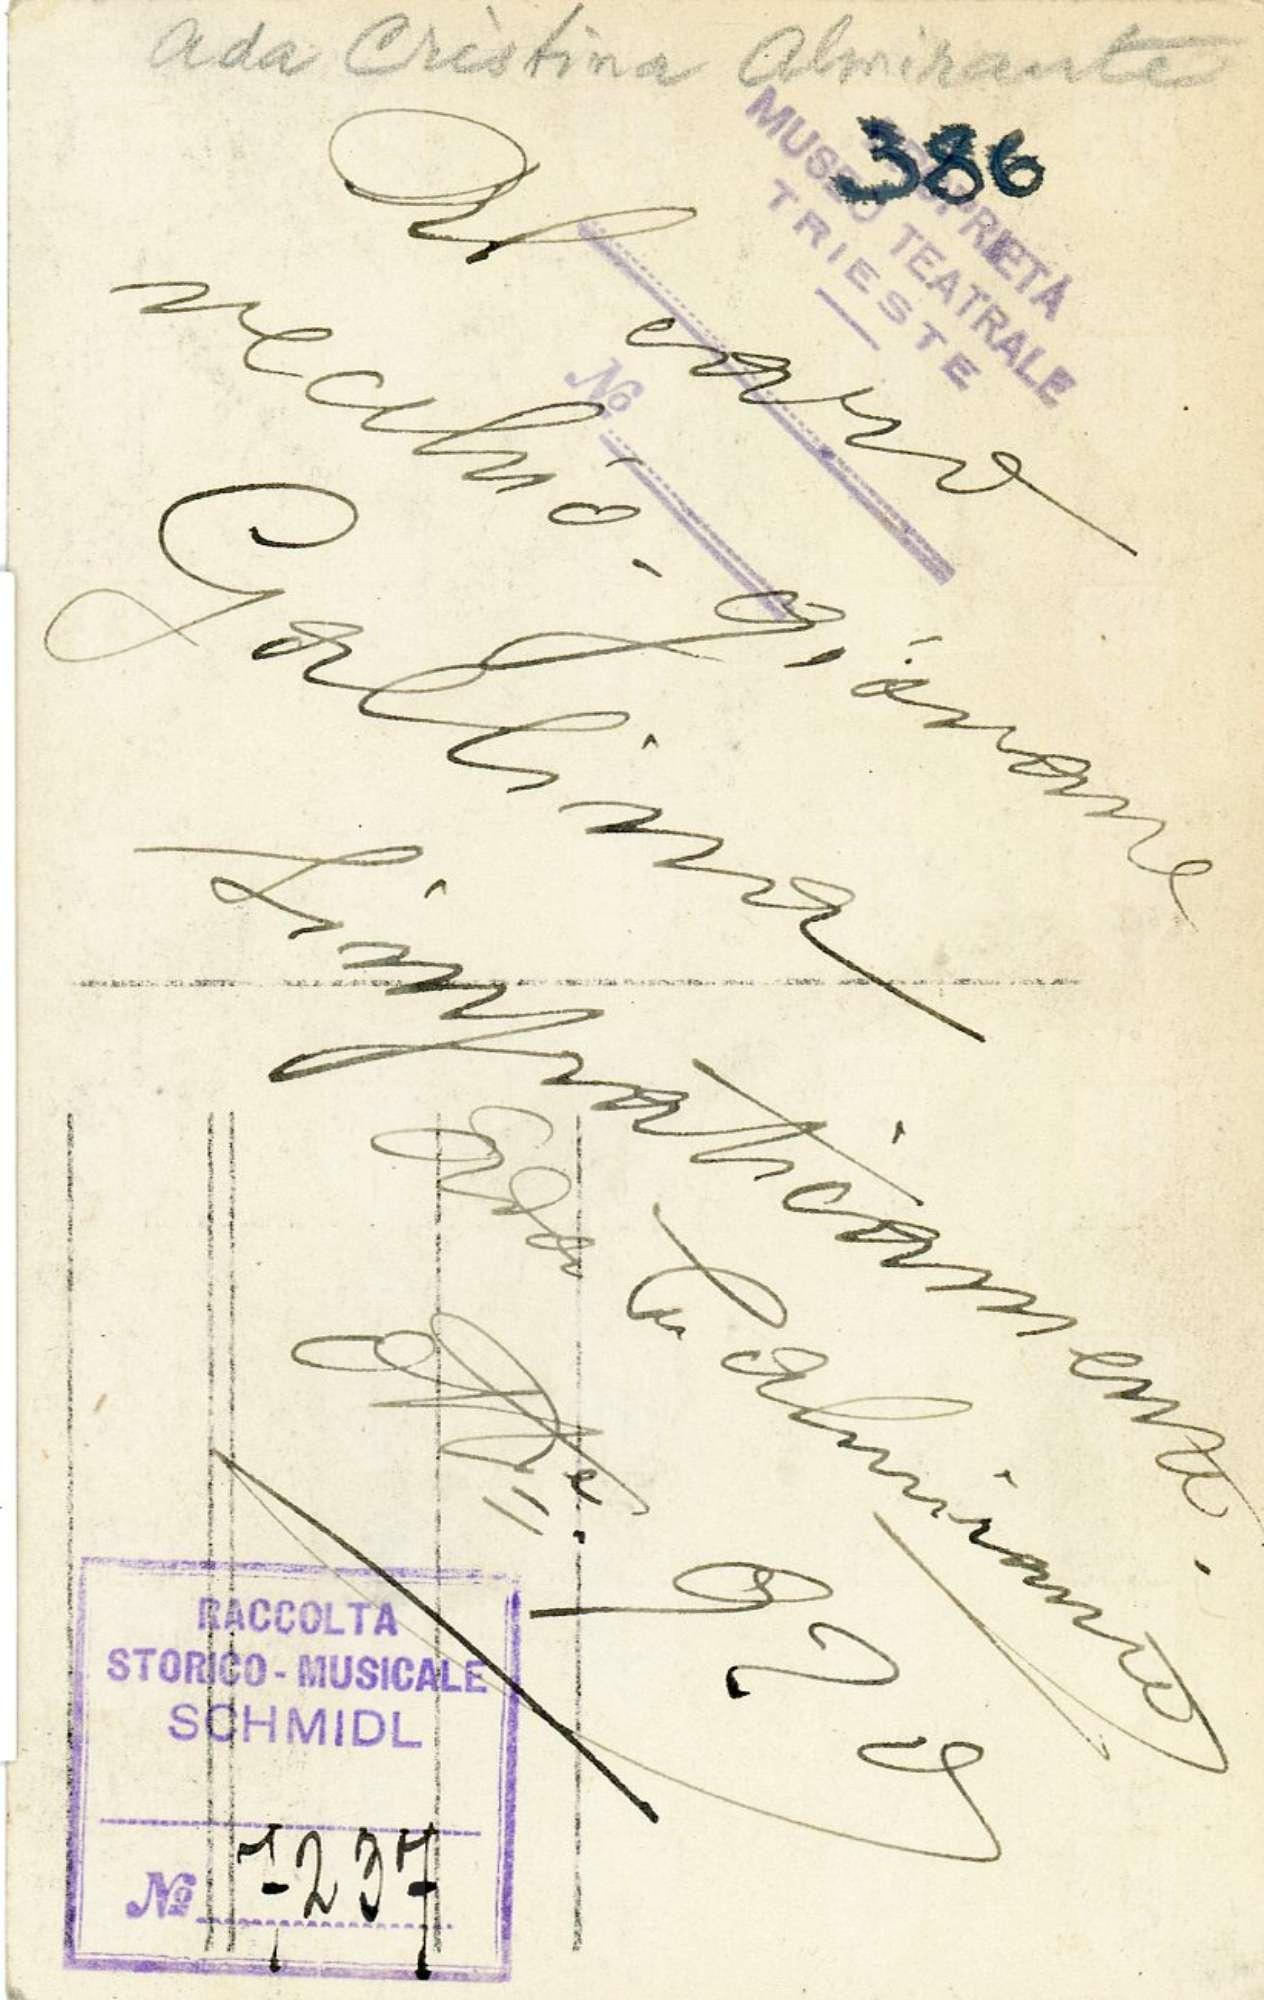 Ada Cristina Almirante
386
PROPRIETÀ
MUSEO TEATRALE
TRIESTE
No
Al caro
vecchio-giovane
Gallina
simpaticamente.
Almirante
920
RACCOLTA
STORICO-MUSICALE
SCHMIDL
No 7237